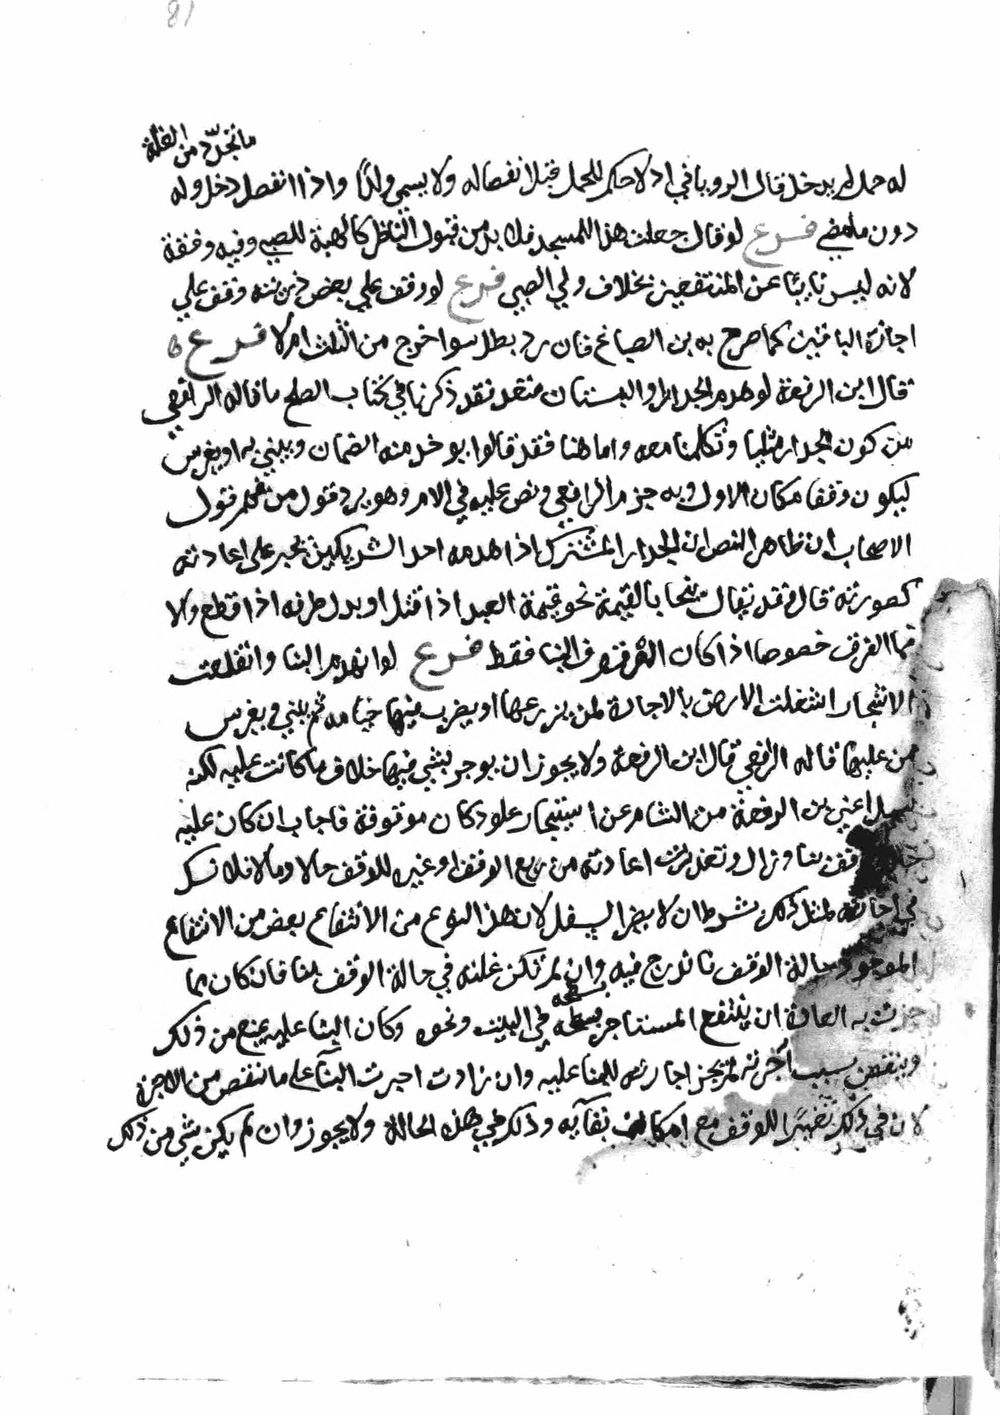 81
ما تجدد من الغلة
له حمل لم يدخل قال الروياني اذ لا حكم للحمل قبل انفصاله ولا يسمي ولدًا واذا انفصل دخل وله
دون ما مضي فرع لو قال جعلت هذا للمسجد فلا بد من قبول الناظر كالهبة للصبي وفيه وقفة
لانه ليس نايبًا عن المنتفعين بخلاف ولي الصبي فرع لو وقف علي بعض ورثته وقف علي
اجازة الباقين كما صرح به بن الصباغ فان رد بطل سوا خرج من الثلث ام لا فرع
قال ابن الرفعة لو هدم الجدار او البستان متعد فقد ذكرنا في كتاب الصلح ما قاله الرافعي
من كون الجدار مثليا وتكلمنا معه واما هنا فقد قالوا يوخذ منه الضمان ويبني به او يغرس
ليكون وقفا مكان الاول وبه جزم الرافعي ونص عليه في الام وهو يرد قول من فهم قول
الاصحاب ان ظاهر النص ان الجدار المشترك اذا هدمه احد الشريكين يجبر علي اعادته
كصورته قال فقد يقال بالقيمة نحو قيمة العبد اذا قتل او بدل طرفه اذا قطع والا
فما الفرق خصوصا اذا كان الموقوف البنا فقط فرع لو انهدم البنا وانقلعت
الاشجار اشغلت الارض بالاجارة لمن يزرعها او يضرب فيها خيامه ثم يبني ويغرس
من غلتها قاله الرافعي قال ابن الرفعة ولا يجوز ان يوجر ليبني فيها خلاف ما كانت عليه لكنه
سيل اعني بن الرفعة من الشام عن استيجار علو دكان موقوفة فاجاب ان كان عليه
وقف بنا وزال وتعذرت اعادته من ريع الوقف او غيره للوقف حالا ومالا فلا نسك
في اجارته لمثل ذلك بشرط ان لا يضر السفل لان هذا النوع من الانتفاع بعض من الانتفاع
الموجود حالة الوقف فاندرج فيه وان لم تكن غلته في حالة الوقف بنا فان كان مما
جرت به العادة ان ينتفع المستاجر بسطحه في المبيت ونحوه وكان البنا عليه يمنع من ذلك
وينقص بسبب اجرته لم يجز اجارته للبنا عليه وان زادت اجرت البنآ علي ما نقص من الاجرة
لان في ذلك تغييرًا للوقف مع امكان بقآيه وذلك في هذه الحالة ولا يجوز وان لم يكن شي من ذلك